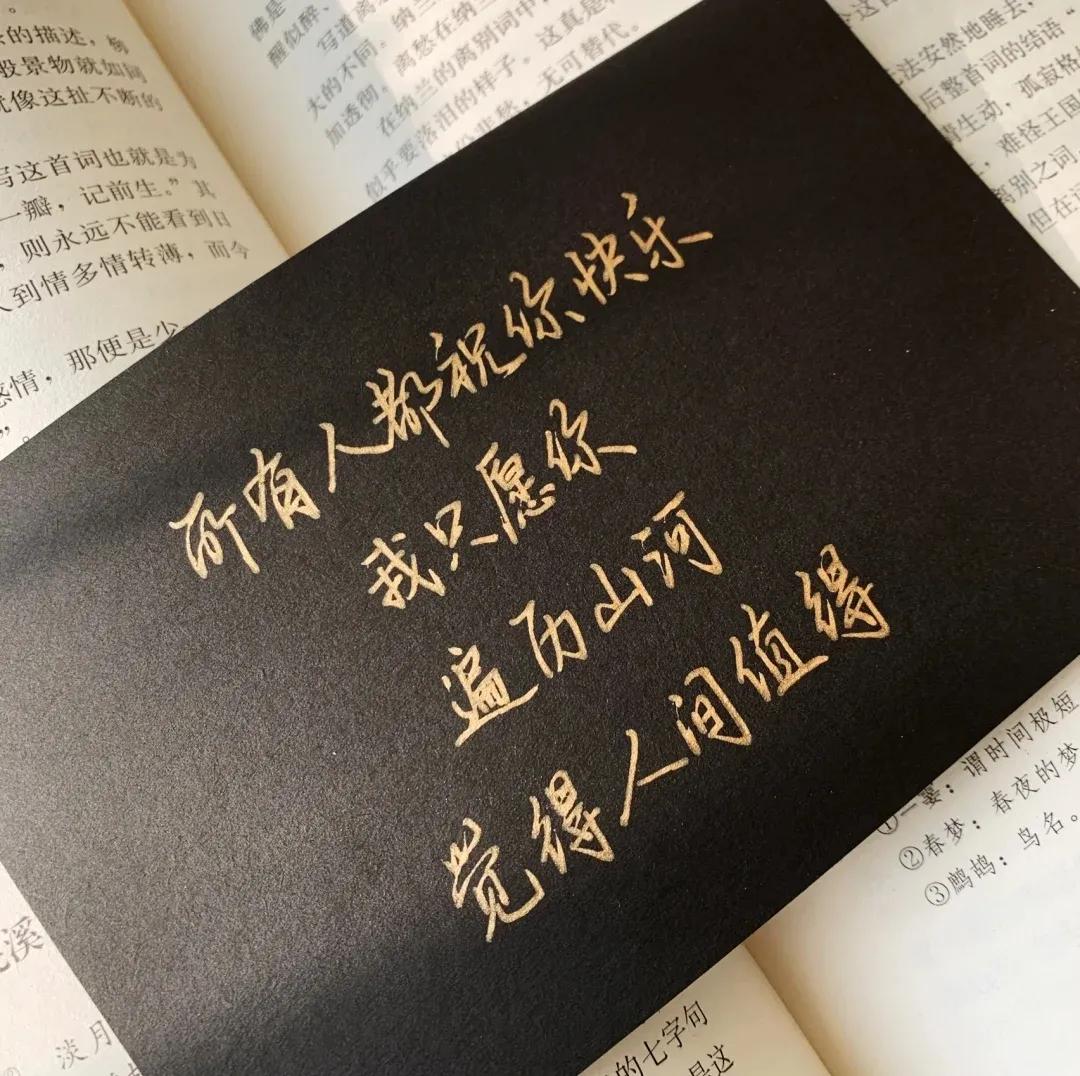 的描述，杨
般景物就如同
就像这扯不断的
写这首词也就是为
一瓣，记前生。”其
，则永远不能看到日
人到情多情转薄，而今
那便是少
感情，
”。
醒似醉、
写道离
大的不同。
离愁在纳兰的离别词中，
加透彻。
在纳兰的样子。
这真是
似乎要落泪的
无可替代。
法安然地睡去，
后整首词的结语“
情生动，孤寂格
，难怪王国
离别之词，
但在
所有人都祝你快乐
我只愿你
遍历山河
觉得人间值得
①一霎：谓时间极短
②春梦：春夜的梦
③鹧鸪：鸟名。
溪
淡月
的七字句
是这